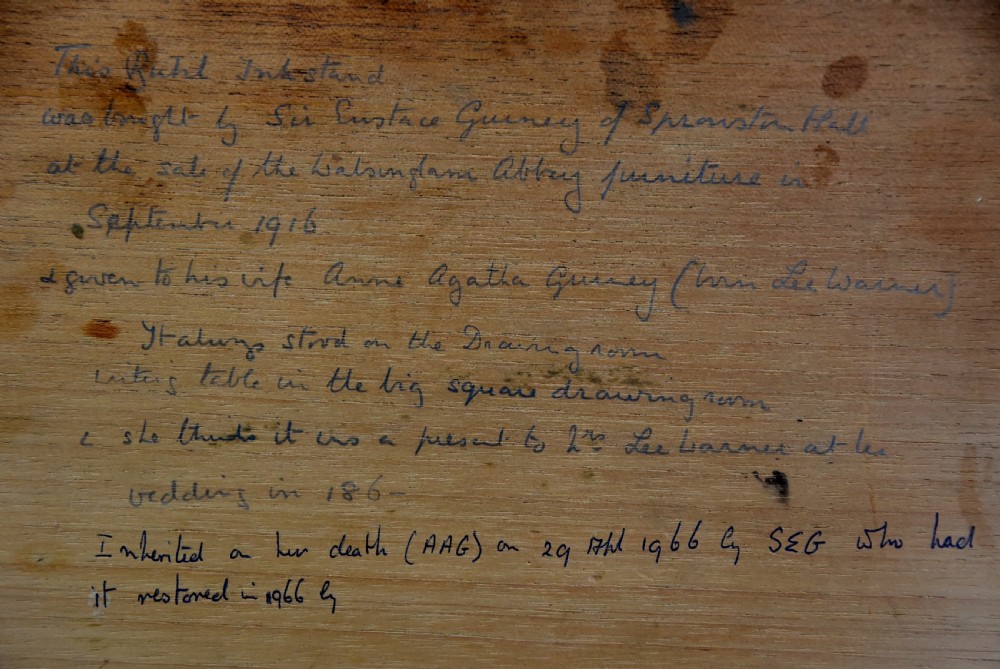 This Kuhl Inkstand
was bought by Sir Eustace Gurney of Sprowston Hall
at the sale of the Walsingham Abbey furniture in
September 1916
& given to his wife Anne Agatha Gurney (born Lee Warner)
It always stood on the Drawing room
writing table in the big square drawing room
& she thinks it was a present to Mrs Lee Warner at her
wedding in 186-
Inherited on her death (AAG) on 29 Apl 1966 by SEG who had
it restored in 1966 by